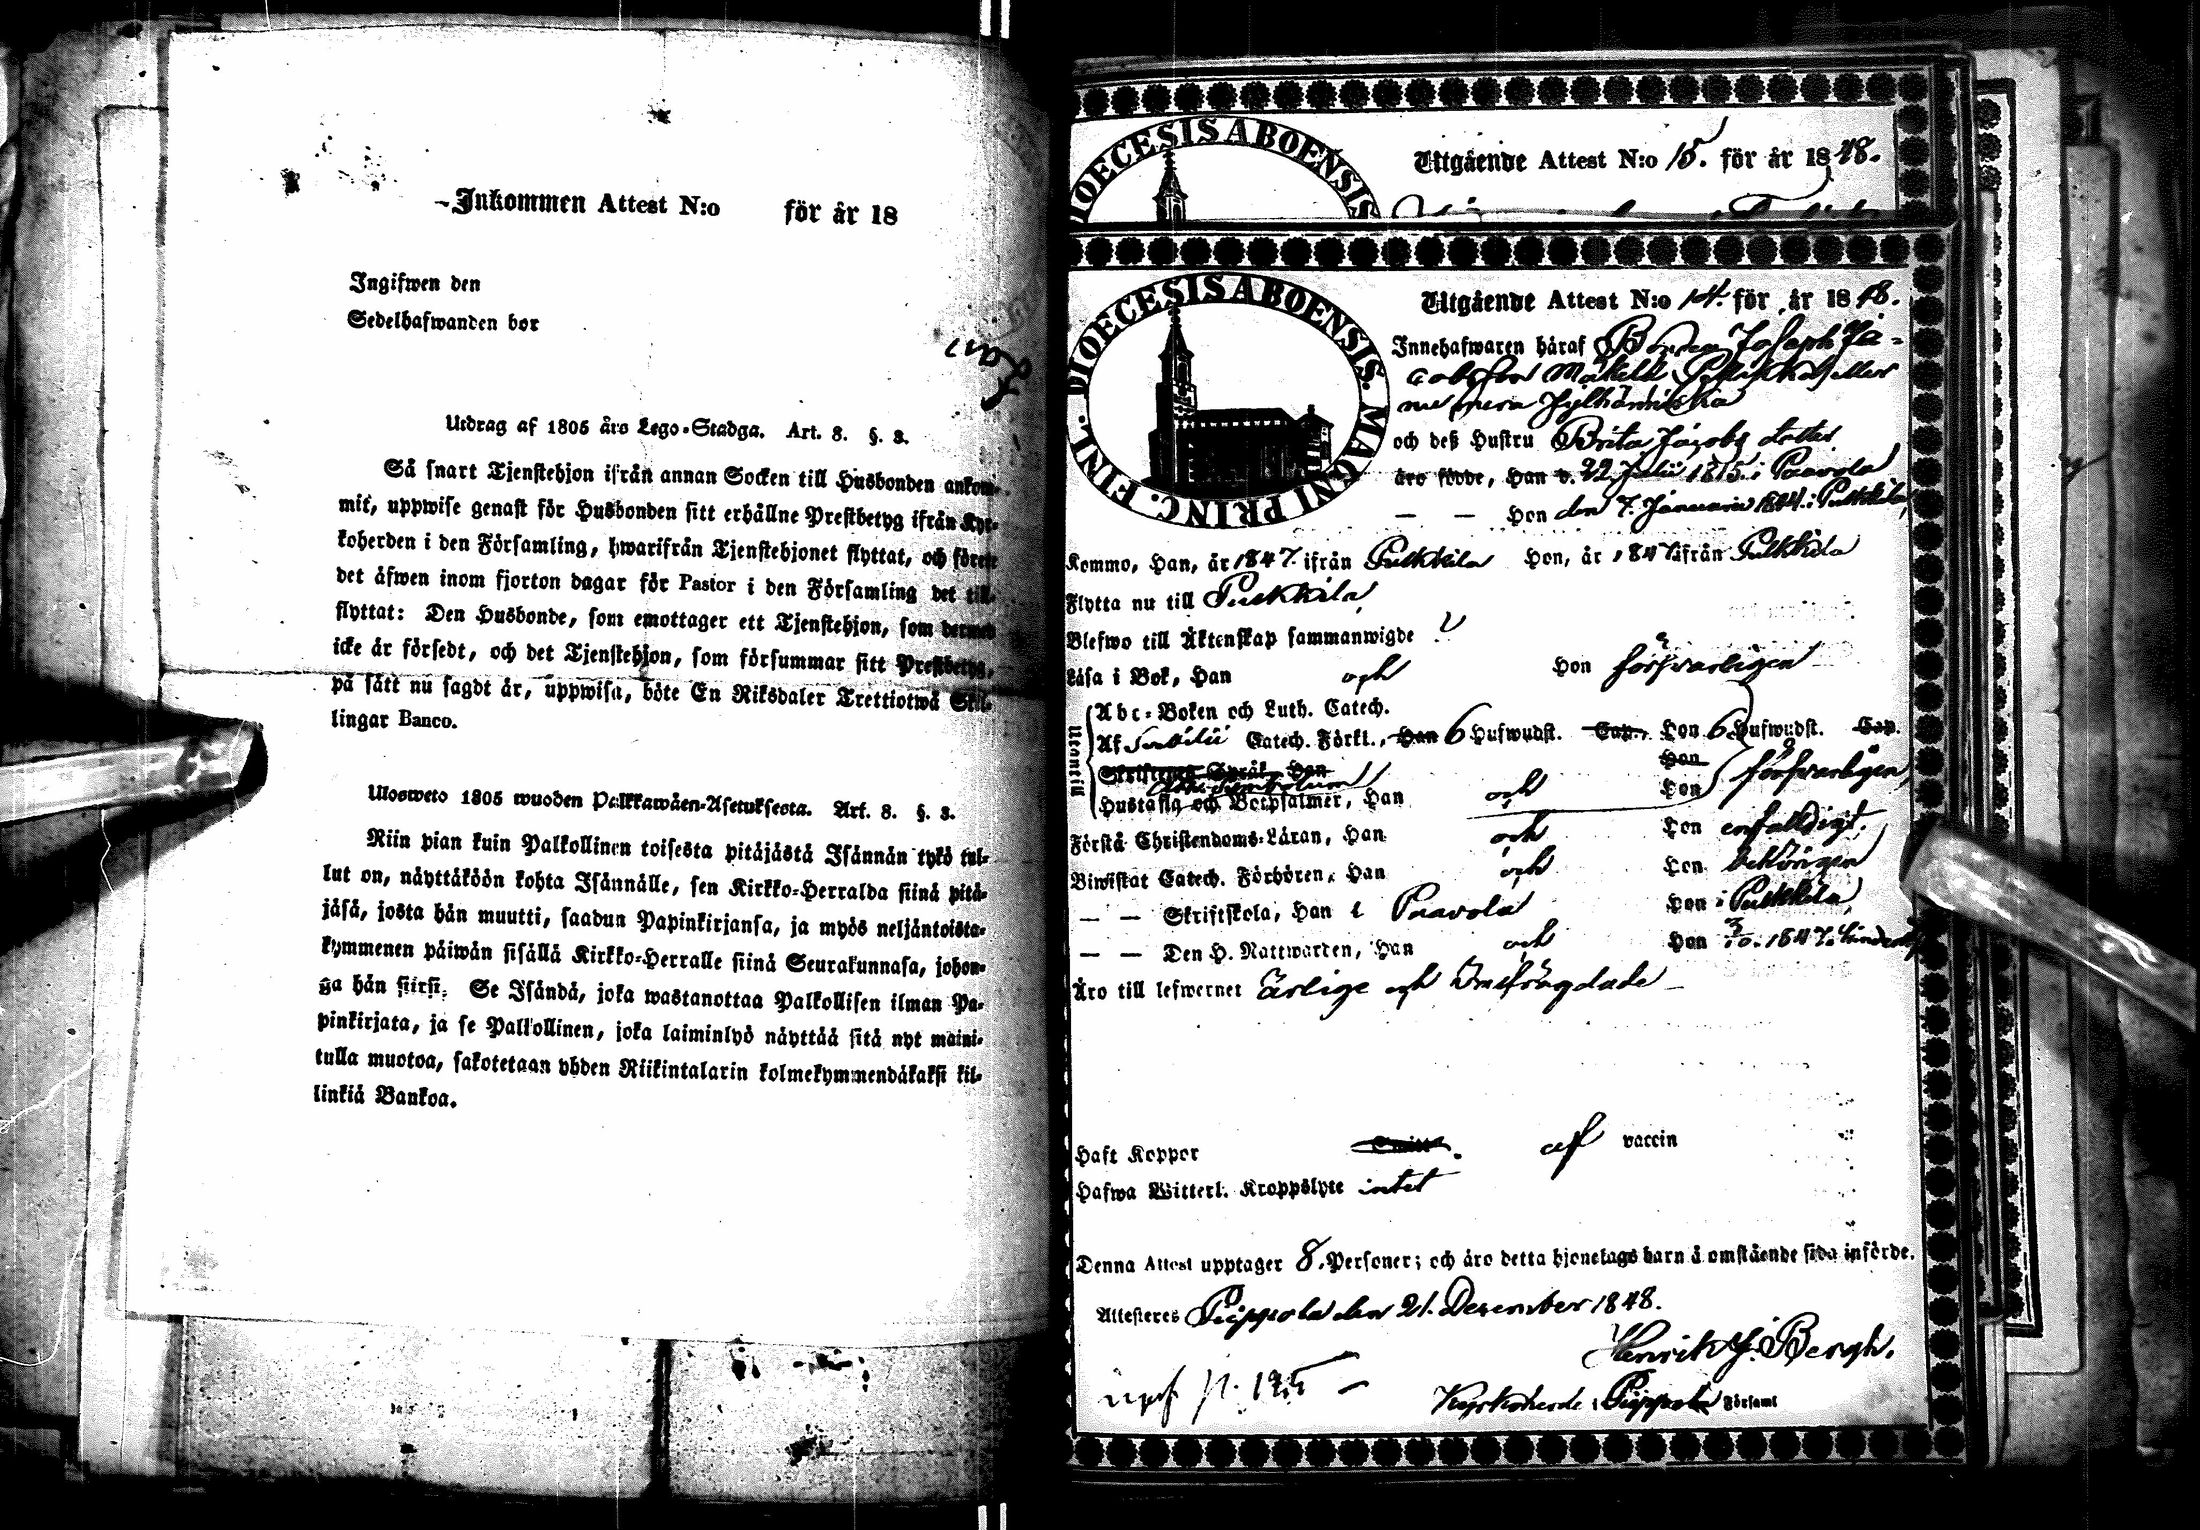 Inkommen Attest N:o för år 18
Ingifwen den
Sedelhafwanden bor
Utdrag af 1805 års Lego-Stadga. Art. 8. §. 3.
Så snart Tjenstehjon ifrån annan Socken till Husbonden ankom-
mit, uppwise genast för Husbonden sitt erhållne Prestbetyg ifrån Kyr-
koherden i den Församling, hwarifrån Tjenstehjonet flyttat, och förete
det äfwen inom fjorton dagar för Pastor i den Församling det till-
flyttat: Den Husbonde, som emottager ett Tjenstehjon, som dermed
icke är försedt, och det Tjenstehjon, som försummar sitt Prestbetyg,
på sätt nu sagdt är, uppwisa, böte En Riksdaler Trettiotwå Skil-
lingar Banco.
Ulosweto 1805 wuoden Palkkawäen-Asetuksesta. Art. 8. §. 3.
Niin pian kuin Palkollinen toisesta pitäjästä Isännän tykö tul-
lut on, näyttäköön kohta Isännälle, sen Kirkko-Herralda siinä pitä-
jäsä, josta hän muutti, saadun Papinkirjansa, ja myös neljäntoista-
kymmenen päiwän sisällä Kirkko-Herralle siinä Seurakunnasa, johon-
ga hän siirsi. Se Isändä, joka wastanottaa Palkollisen ilman Pa-
pinkirjata, ja se Palkollinen, joka laiminlyö näyttää sitä nyt maini-
tulla muotoa, sakotetaan yhden Riikintalarin kolmekymmendäkaksi kil-
linkiä Bankoa.
DIOECESIS ABOENSIS
Utgående Attest N:o 15. för år 1848.
DIOECESIS ABOENSIS. MAGNI PRINC. FINL.
Utgående Attest N:o 14. för år 1848.
Innehafwaren häraf Bonden Joseph Ja-
cobsson Mäkelä
och deß Hustru Brita Jacobs dotter
äro födde, Han d. 22 Julii 1815. i Paavola
— — Hon den 7. Januarii 1824. i Pulkkila,
Kommo, Han, år 1847. ifrån Pulkkila Hon, år 1847 ifrån Pulkkila
Flytta nu till Pulkkila
Blefwo till Äktenskap sammanwigde
Läsa i Bok, Han och Hon försvarligen
Abc-Boken och Luth. Catech.
Af Svebilii Catech. Förkl., Han 6 Hufwudst. Cap., Hon 6 Hufwudst. Cap.
Skriftenes Språk, Han Hon försvarligen
Athan. Symbolum
Hustafla och Botpsalmer, Han och Hon
Förstå Christendoms-Läran, Han och Hon enfaldigt.
Biwistat Catech. Förhören, Han och Hon behörigen
— — Skriftskola, Han i Paavola Hon i Pulkkila
— — Den H. Nattwarden, Han och Hon 3/10. 1847.
Äro till lefwernet ärlige och Oneesfrägdade
Haft Koppor af vaccin
Hafwa Witterl. Kroppslyte intet
Denna Attest upptager 8. Personer; och äro detta hjonelags barn å omstående sida införde.
Attesteres Pippola den 21. December 1848.
Henrik J. Bergh.
Kyrkoherde i Pippola Församl.